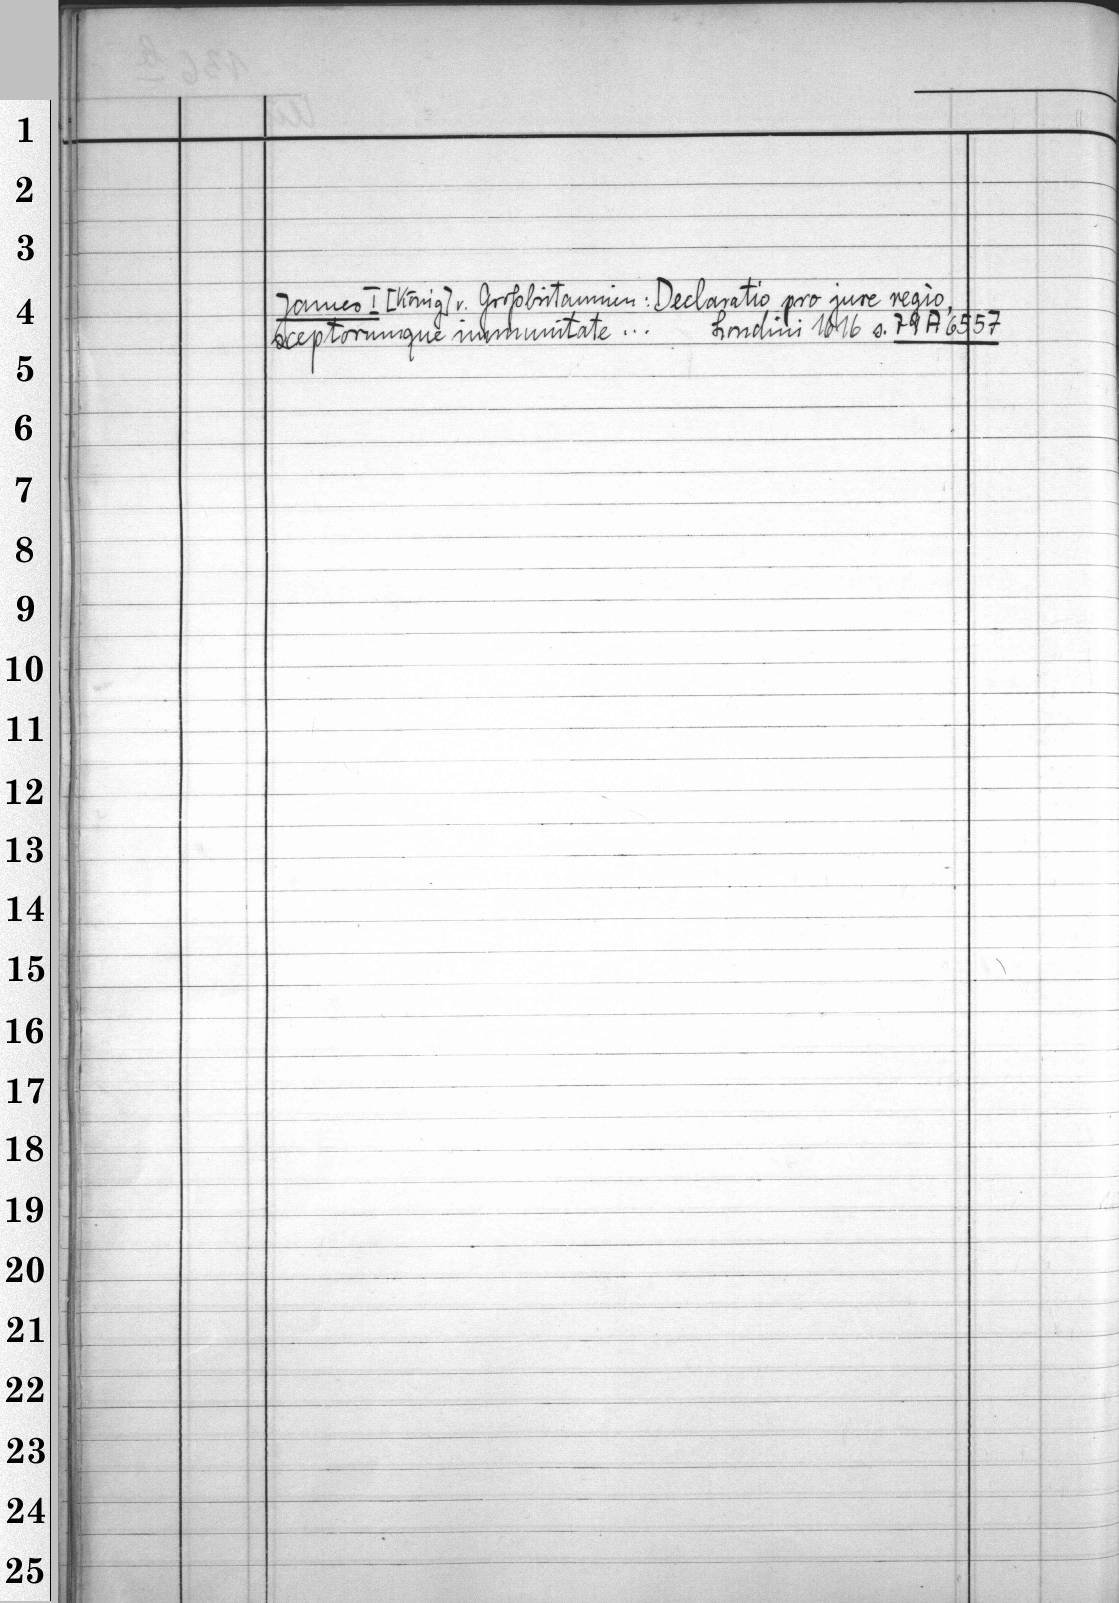 1
2
3
4
James I [König] v. Großbritannien: Declaratio pro jure regio,
sceptorumque immunitate ... Londini 1616 s. 79 A 6557
5
6
7
8
9
10
11
12
13
14
15
16
17
18
19
20
21
22
23
24
25